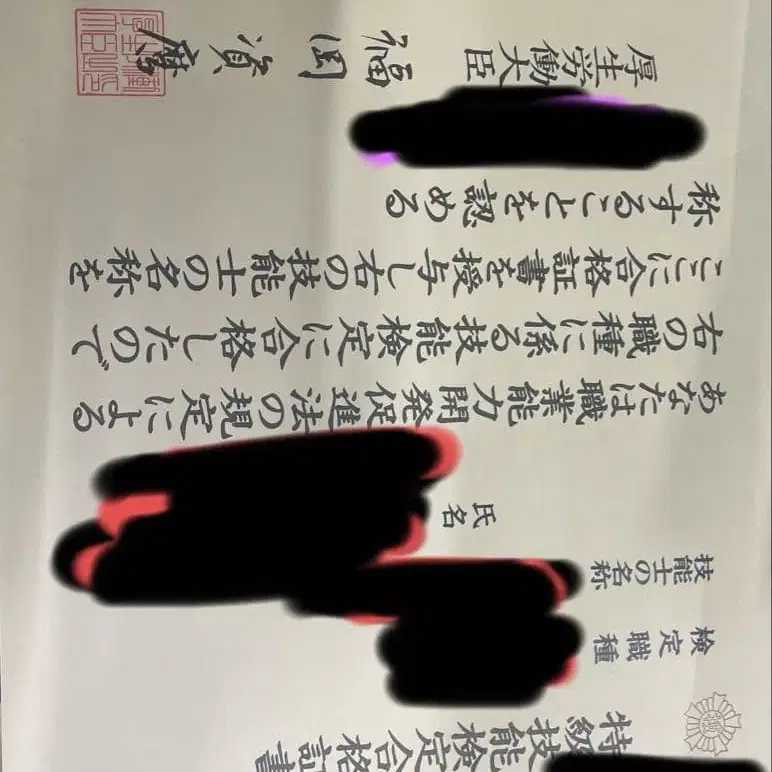 特級技能検定合格証書
検定職種
技能士の名称
氏名
あなたは職業能力開発促進法の規定による
右の職種に係る技能検定に合格したので
ここに合格証書を授与し右の技能士の名称を
称することを認める
厚生労働大臣 福岡資麿